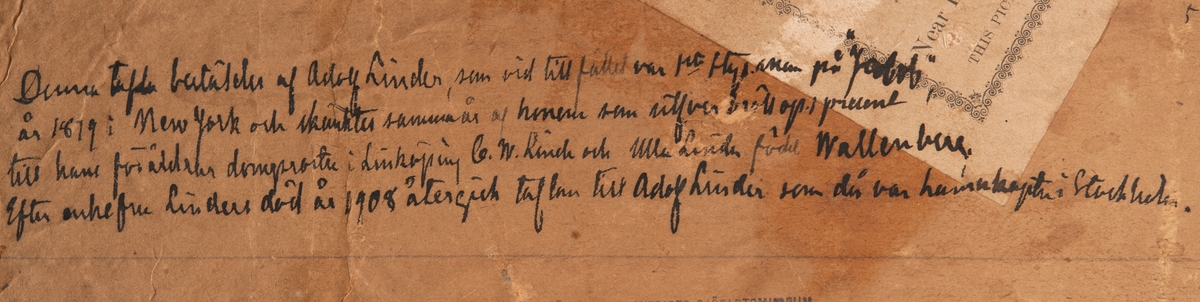 Denna tafla bestäldes af Adolf Linder, som vid tillfället var på "Jakob",
år 1879 i New York och skänktes samma år af honom som silfverbröllopspresent
till hans föräldrar domprosten i Linköping C. W. Linder och Ulla Linder född Wallenberg.
Efter enkefru Linders död år 1908 återgick taflan till Adolf Linder som då var hamnkapten i Stockholm.
Near
THIS PIC
5